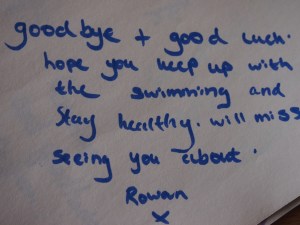 goodbye + good luck.
hope you keep up with
the swimming and
stay healthy. will miss
seeing you about.
Rowan
x